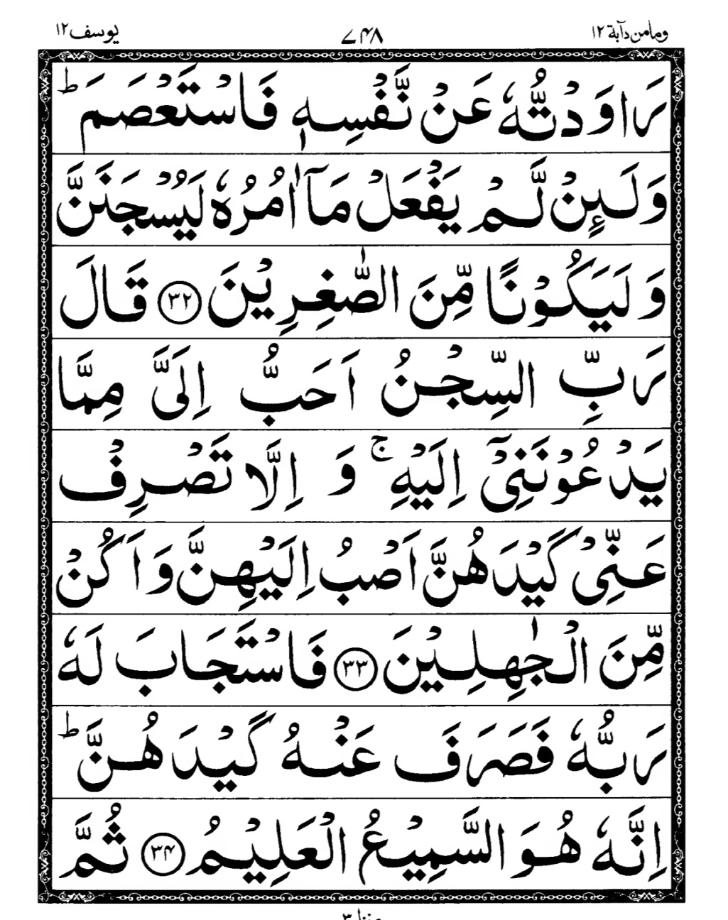 ومامن دآبة ١٢ ٧٤٨ يوسف ١٢
رَاوَدْتُّهٗ عَنْ نَّفْسِهٖ فَاسْتَعْصَمَ ؕ
وَلَىِٕنْ لَّمْ يَفْعَلْ مَاۤ اٰمُرُهٗ لَيُسْجَنَنَّ
وَلَيَكُوْنًا مِّنَ الصّٰغِرِيْنَ ﴿٣٢﴾ قَالَ
رَبِّ السِّجْنُ اَحَبُّ اِلَيَّ مِمَّا
يَدْعُوْنَنِيْۤ اِلَيْهِ ۚ وَ اِلَّا تَصْرِفْ
عَنِّيْ كَيْدَهُنَّ اَصْبُ اِلَيْهِنَّ وَاَكُنْ
مِّنَ الْجٰهِلِيْنَ ﴿٣٣﴾ فَاسْتَجَابَ لَهٗ
رَبُّهٗ فَصَرَفَ عَنْهُ كَيْدَهُنَّ ؕ
اِنَّهٗ هُوَ السَّمِيْعُ الْعَلِيْمُ ﴿٣٤﴾ ثُمَّ